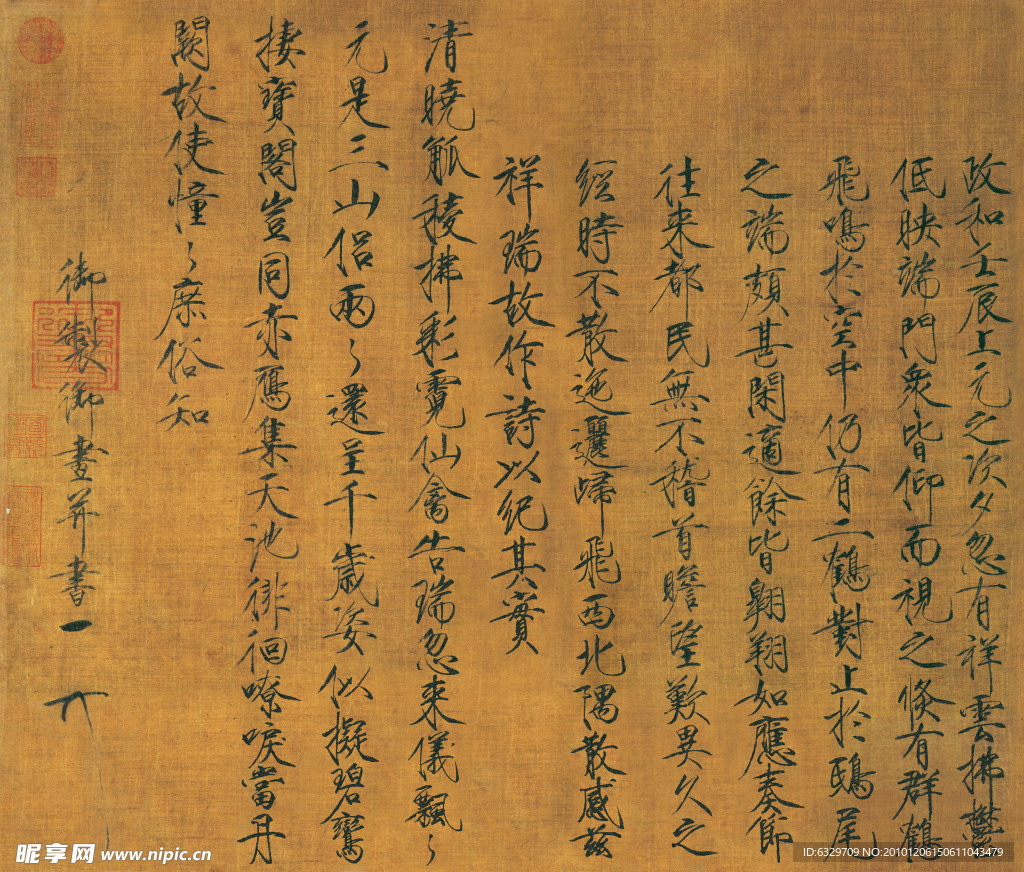 政和壬辰上元之次夕忽有祥雲拂鬱
低映端門衆皆仰而視之倐有群鶴
飛鳴於空中仍有二鶴對止於鴟尾
之端頗甚閑適餘皆翱翔如應奏節
往来都民無不稽首瞻望歎異久之
經時不散迤邐歸飛西北隅散感兹
祥瑞故作詩以紀其實
清曉觚稜拂彩霓仙禽告瑞忽来儀飄〻
元是三山侣兩〻還呈千歲姿似擬碧鸞
棲寶閣豈同赤鴈集天池徘徊嘹唳當丹
闕故使憧〻庶俗知
御製御畫并書
昵享网 www.nipic.cn
ID:6329709 NO:20101206150611043479